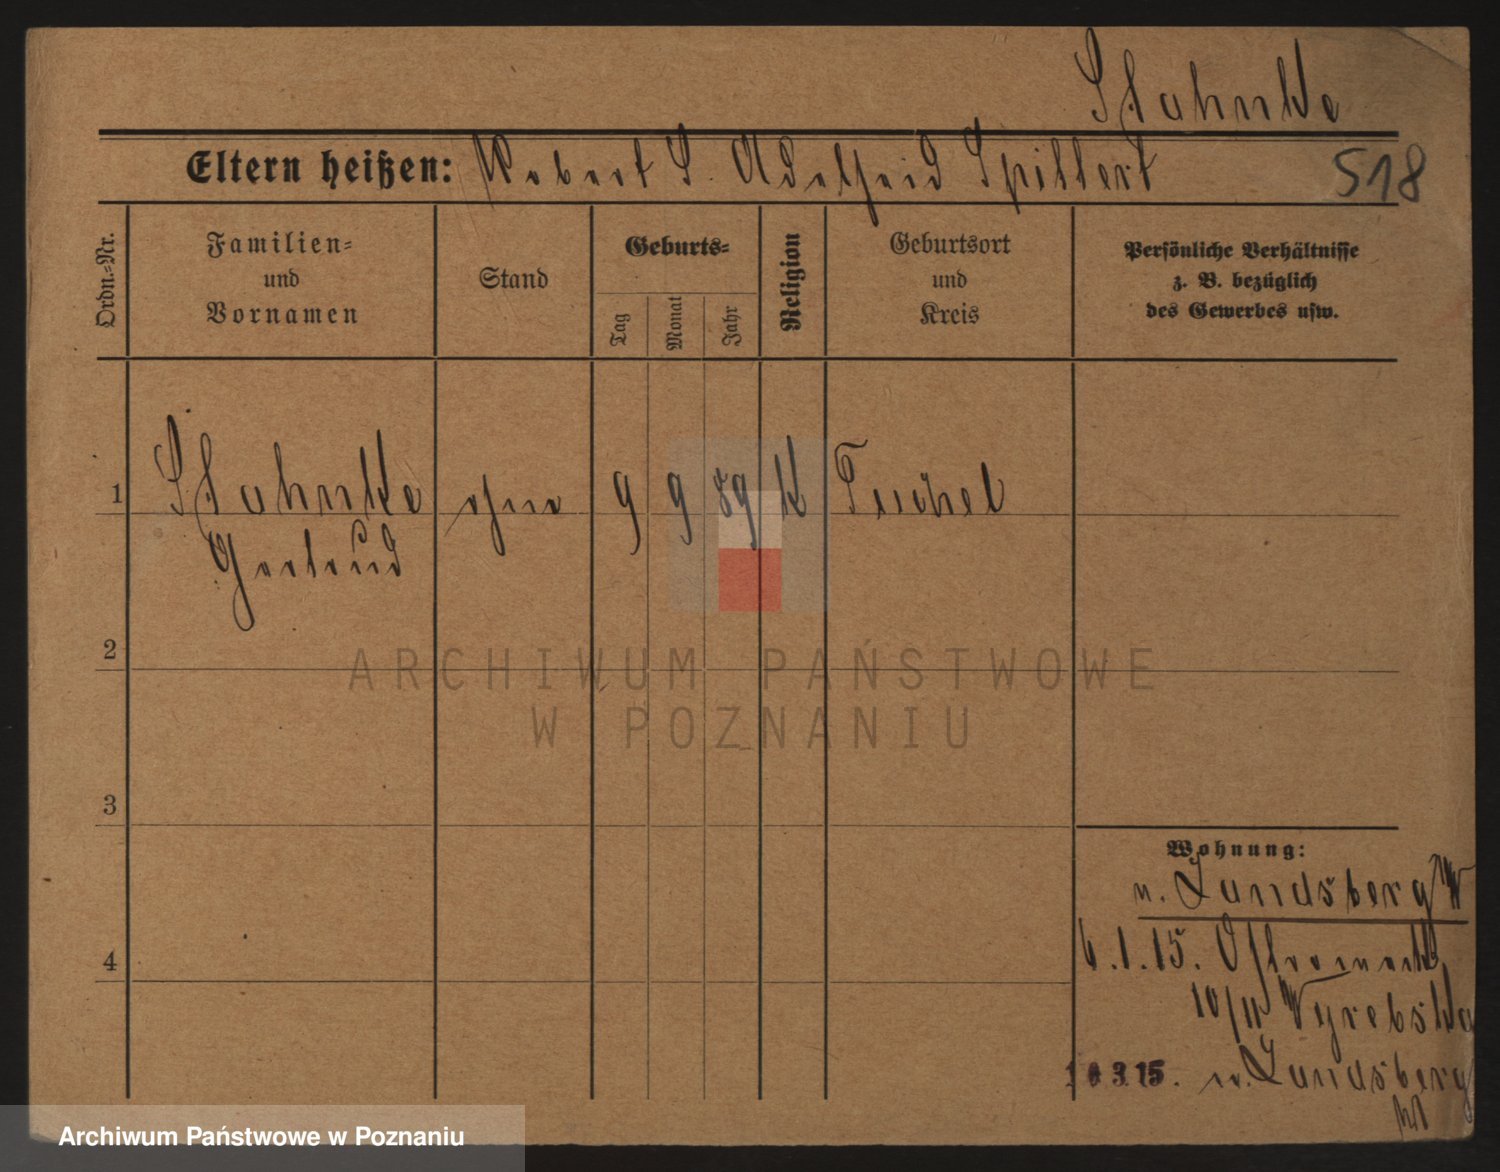 Stahnke
Eltern heißen: Robert S. Adelheid Spillert 518
Ordn.=Nr.
Familien=
und
Vornamen
Stand
Geburts=
Tag Monat Jahr
Religion
Geburtsort
und
Kreis
Persönliche Verhältnisse
z. B. bezüglich
des Gewerbes usw.
1 Stahnke ohne 9 9 59 K Tuchel
Gertrud
2
3
4
Wohnung:
n. Landsberg W
6.1.15.
10/11 Wyrebska
10 3 15. n. Landsberg
ARCHIWUM PAŃSTWOWE
W POZNANIU
Archiwum Państwowe w Poznaniu